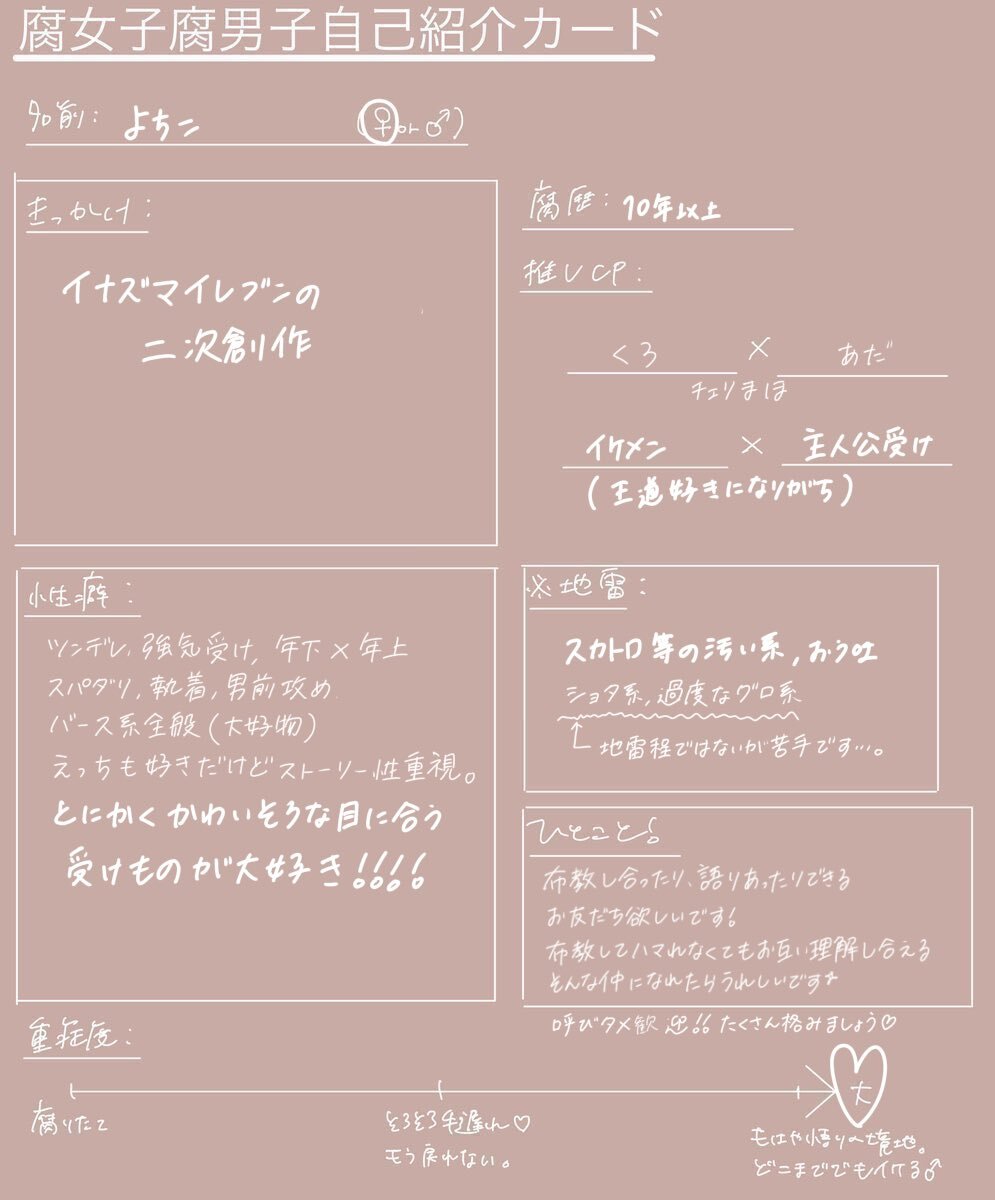 腐女子腐男子自己紹介カード
名前: よちこ (♀or♂)
きっかけ:
イナズマイレブンの
二次創作
腐歴: 10年以上
推しCP:
くろ × あだ
チェリまほ
イケメン × 主人公受け
(王道好きになりがち)
性癖:
ツンデレ、強気受け, 年下×年上
スパダリ, 執着, 男前攻め
バース系全般(大好物)
えっちも好きだけどストーリー性重視。
とにかくかわいそうな目に合う
受けものが大好き!!!!
※地雷:
スカトロ等の汚い系, おう吐
ショタ系, 過度なグロ系
↑地雷程ではないが苦手です…。
ひとこと!
布教し合ったり、語りあったりできる
お友だち欲しいです!
布教してハマれなくてもお互い理解し合える
そんな仲になれたらうれしいです
呼びタメ歓迎!! たくさん絡みましょう♡
重症度:
大
腐りたて
そろそろ手遅れ♡
もう戻れない。
もはや悟りの境地。
どこまででもイケる♂